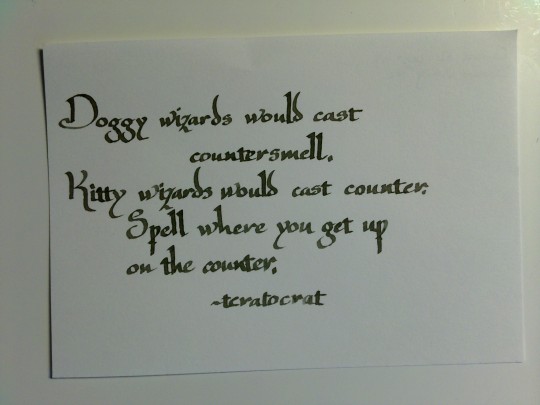 Doggy wizards would cast
countersmell.
Kitty wizards would cast counter.
Spell where you get up
on the counter.
~teratocrat